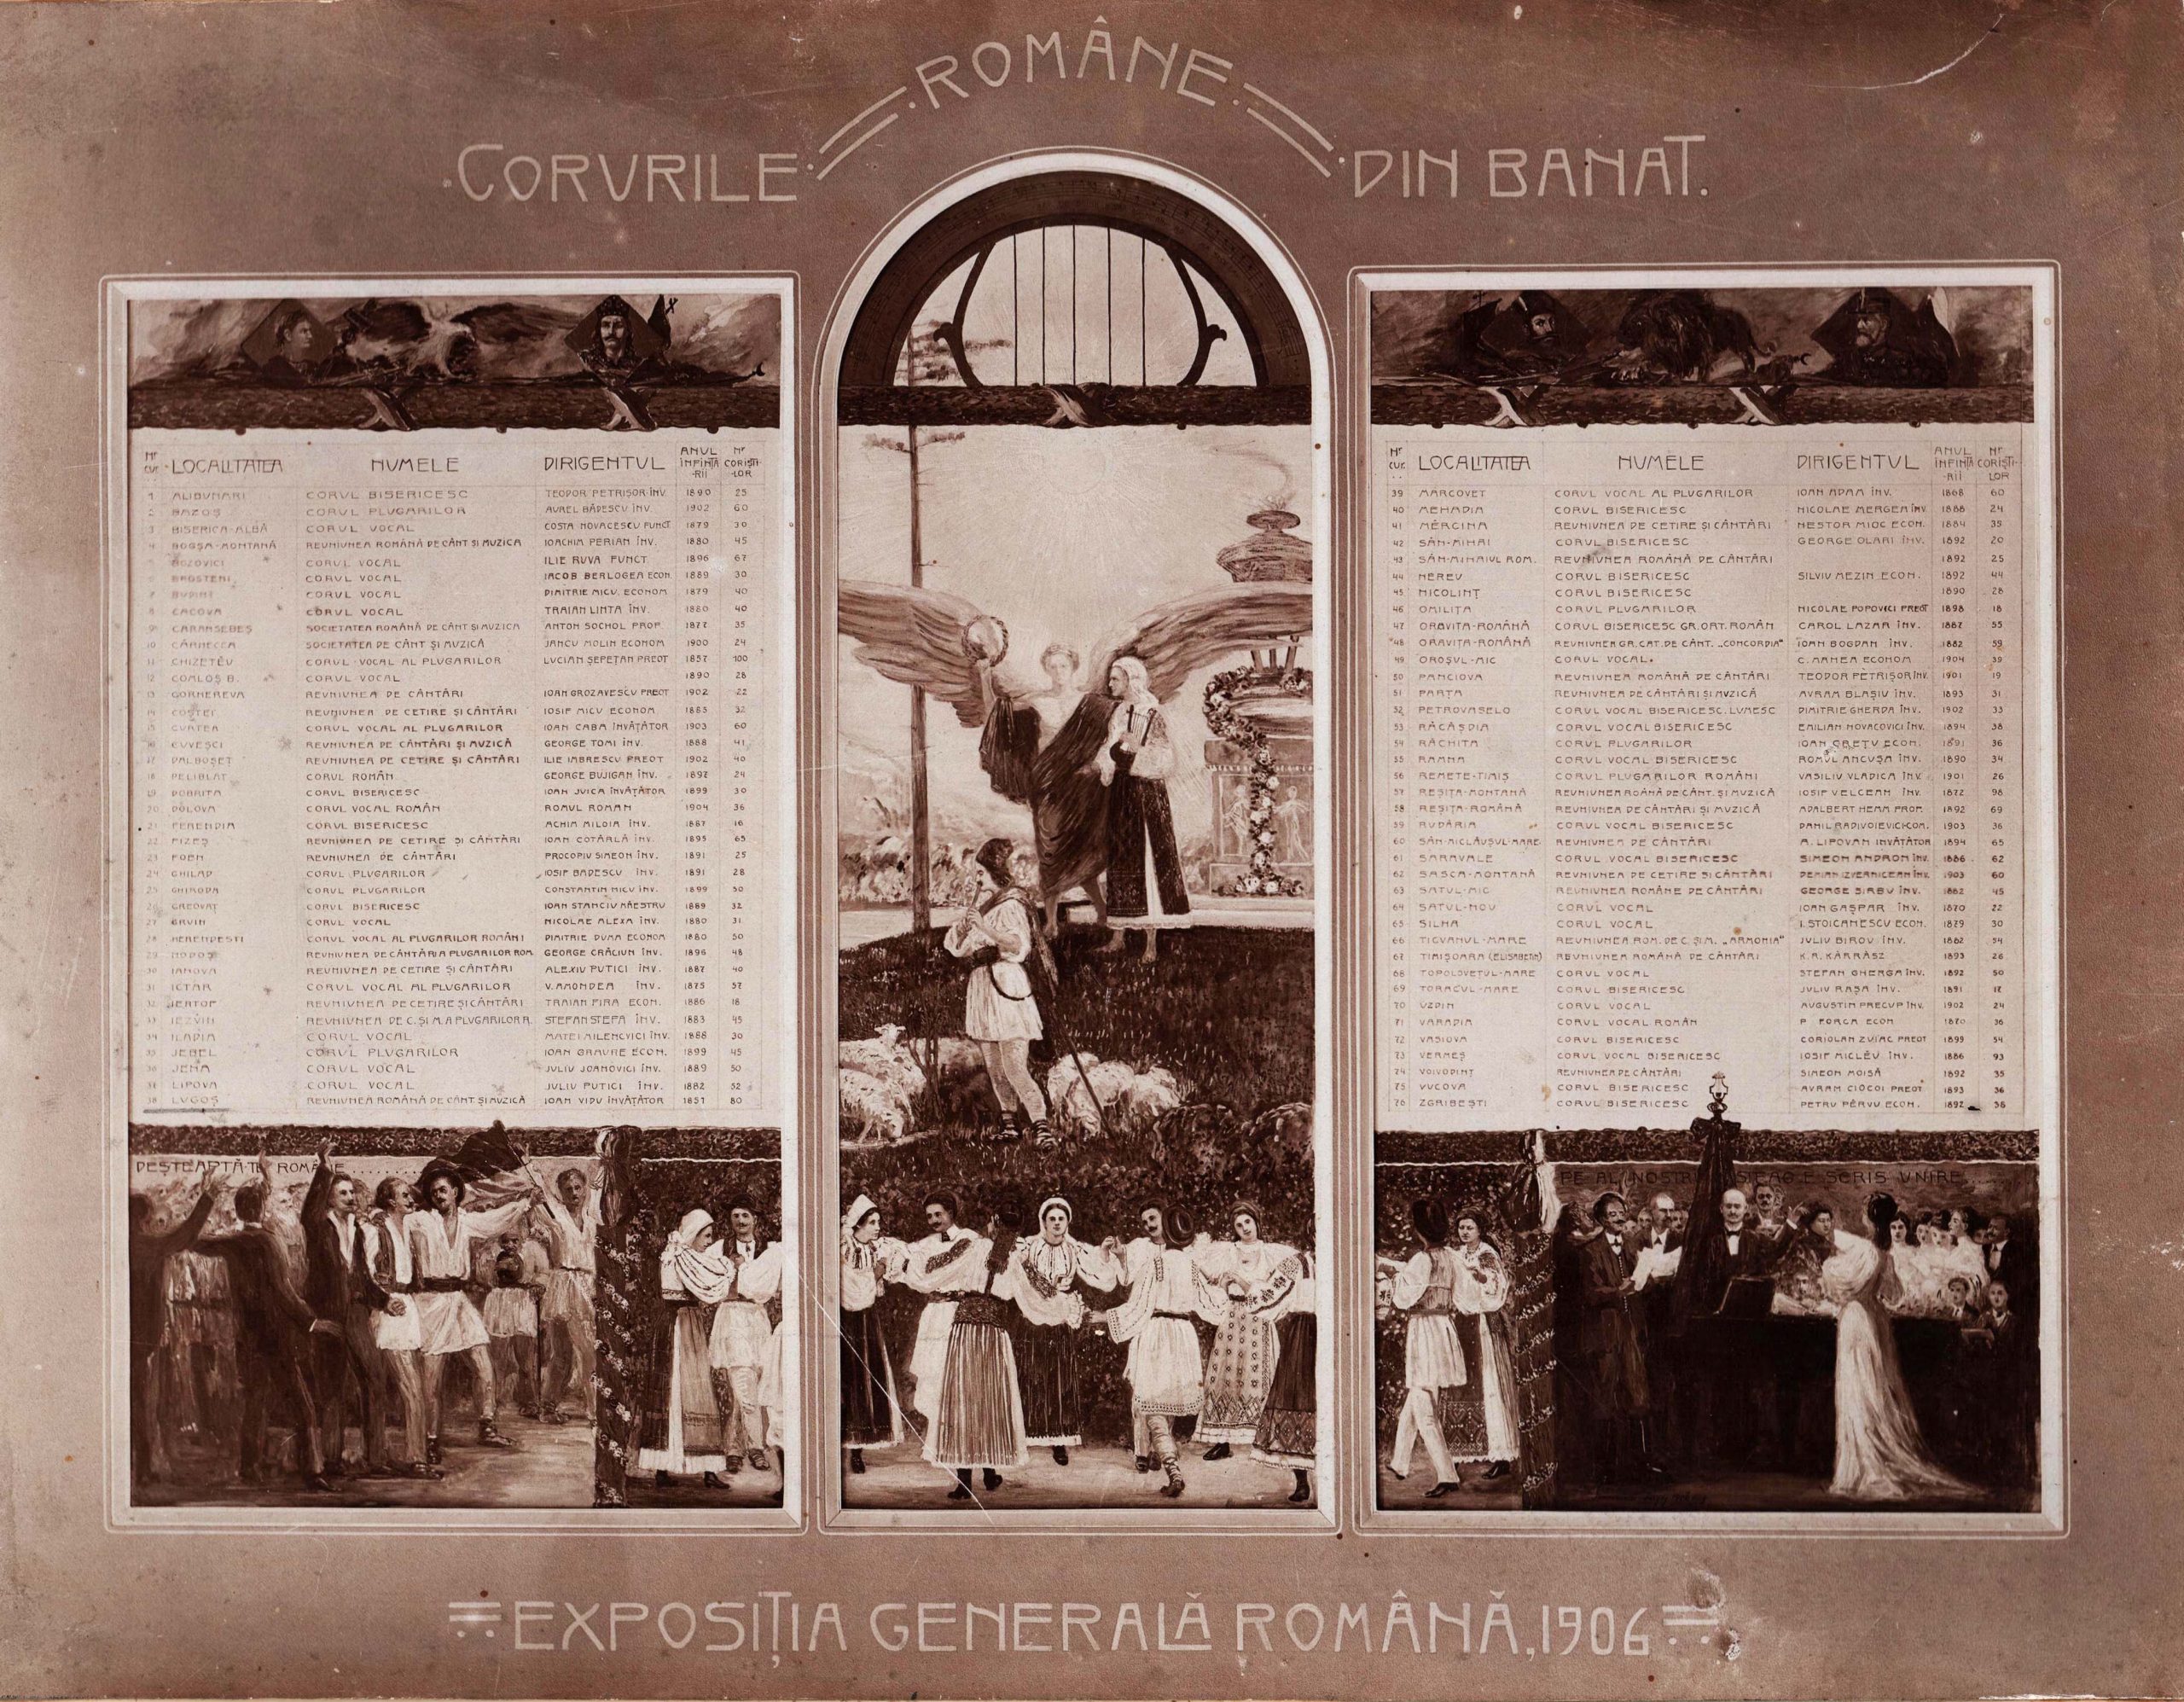 ROMÂNE
CORURILE DIN BANAT.
Nr CUR. LOCALITATEA NUMELE DIRIGENTUL ANUL ÎNFIINȚĂ-RII Nr CORIȘTI-LOR
1 ALIBUNARI CORUL BISERICESC TEODOR PETRIȘOR ÎNV. 1890 25
2 BAZOȘ CORUL PLUGARILOR AUREL BĂDESCU ÎNV. 1902 60
3 BISERICA-ALBĂ CORUL VOCAL COSTA NOVACESCU FUNCT 1879 30
4 BOGȘA-MONTANĂ REUNIUNEA ROMÂNĂ DE CÂNT ȘI MUZICA IOACHIM PERIAN ÎNV. 1880 45
BOZOVICI CORUL VOCAL ILIE RUVA FUNCT 1896 67
BROȘTENI CORUL VOCAL IACOB BERLOGEA ECON. 1889 30
CORUL VOCAL DIMITRIE MICU. ECONOM 1879 40
8 CACOVA CORUL VOCAL TRAIAN LINTA ÎNV. 1880 40
9 CARANSEBEȘ SOCIETATEA ROMÂNĂ DE CÂNT ȘI MUZICA ANTON SOCHOL PROF. 1877 35
10 CÂRNECEA SOCIETATEA DE CÂNT ȘI MUZICĂ JANCU MOLIN ECONOM 1900 24
11 CHIZETĔU CORUL VOCAL AL PLUGARILOR LUCIAN ȘEPEȚAN PREOT 1857 100
12 COMLOȘ B. CORUL VOCAL 1890 28
13 CORNEREVA REUNIUNEA DE CÂNTĂRI IOAN GROZAVESCU PREOT 1902 22
14 COȘTEI REUNIUNEA DE CETIRE ȘI CÂNTĂRI IOSIF MICU ECONOM 1885 32
15 CURTEA CORUL VOCAL AL PLUGARILOR IOAN CABA ÎNVĂȚĂTOR 1903 60
16 CUVEȘCI REUNIUNEA DE CÂNTĂRI ȘI MUZICĂ GEORGE TOMI ÎNV. 1888 41
17 DALBOȘEȚ REUNIUNEA DE CETIRE ȘI CÂNTĂRI ILIE IMBRESCU PREOT 1902 40
18 DELIBLAT CORUL ROMÂN GEORGE BUJIGAN ÎNV. 1897 24
19 DOBRITA CORUL BISERICESC IOAN JUICA ÎNVĂȚĂTOR 1899 30
20 DOLOVA CORUL VOCAL ROMÂN ROMUL ROMAN 1904 36
21 FERENDIA CORUL BISERICESC ACHIM MILOIA ÎNV. 1887 16
22 FIZEȘ REUNIUNEA DE CETIRE ȘI CÂNTĂRI IOAN COTÂRLĂ ÎNV. 1895 65
23 FOEN REUNIUNEA DE CÂNTĂRI PROCOPIU SIMEON ÎNV. 1891 25
24 GHILAD CORUL PLUGARILOR IOSIF BADESCU ÎNV. 1891 28
25 GHIRODA CORUL PLUGARILOR CONSTANTIN MICU ÎNV. 1899 50
26 GREOVAȚ CORUL BISERICESC IOAN STANCIU MĂESTRU 1889 32
27 GRUIN CORUL VOCAL NICOLAE ALEXA ÎNV. 1880 31
28 HERENDEȘTI CORUL VOCAL AL PLUGARILOR ROMÂNI DIMITRIE DUMA ECONOM 1880 50
29 HODOȘ REUNIUNEA DE CÂNTĂRI A PLUGARILOR ROM. GEORGE CRĂCIUN ÎNV. 1896 48
30 IANOVA REUNIUNEA DE CETIRE ȘI CÂNTĂRI ALEXIU PUTICI ÎNV. 1887 40
31 ICTAR CORUL VOCAL AL PLUGARILOR V. AMONDEA ÎNV. 1875 57
32 IERTOF REUNIUNEA DE CETIRE ȘI CÂNTĂRI TRAIAN FIRA ECON. 1886 18
33 IEZVIN REUNIUNEA DE C. ȘI M. A PLUGARILOR R. STEFAN STEPA ÎNV. 1883 45
34 ILADIA CORUL VOCAL MATEI MILENCVICI ÎNV. 1888 30
35 JEBEL CORUL PLUGARILOR IOAN GRAURE ECON. 1899 45
36 JENA CORUL VOCAL JULIU JOANOVICI ÎNV. 1889 50
37 LIPOVA CORUL VOCAL JULIU PUTICI ÎNV. 1882 52
38 LUGOȘ REUNIUNEA ROMÂNĂ DE CÂNT ȘI MUZICĂ IOAN VIDU ÎNVĂȚĂTOR 1857 80
DEȘTEAPTĂ-TE ROMÂNE........
Nr CUR. LOCALITATEA NUMELE DIRIGENTUL ANUL ÎNFIINȚĂ-RII Nr CORIȘTI-LOR
39 MARCOVEȚ CORUL VOCAL AL PLUGARILOR IOAN ADAM ÎNV. 1868 60
40 MEHADIA CORUL BISERICESC NICOLAE MERGEA ÎNV. 1888 24
41 MĔRCINA REUNIUNEA DE CETIRE ȘI CÂNTĂRI NESTOR MIOC ECON. 1884 35
42 SÂN-MIHAI CORUL BISERICESC GEORGE OLARI ÎNV. 1892 20
43 SÂN-MIHAIUL ROM. REUNIUNEA ROMÂNĂ DE CÂNTĂRI 1892 25
44 NEREU CORUL BISERICESC SILVIU MEZIN ECON. 1892 44
45 NICOLINȚ CORUL BISERICESC 1890 28
46 OMILIȚA CORUL PLUGARILOR NICOLAE POPOVICI PREOT 1898 18
47 ORAVIȚA-ROMÂNĂ CORUL BISERICESC GR. ORT. ROMÂN CAROL LAZAR ÎNV. 1867 55
48 ORAVIȚA-ROMÂNĂ REUNIUNEA GR. CAT. DE CÂNT. „CONCORDIA" IOAN BOGDAN ÎNV. 1882 59
49 OROȘUL-MIC CORUL VOCAL. C. MANEA ECONOM 1904 39
50 PANCIOVA REUNIUNEA ROMÂNĂ DE CÂNTĂRI TEODOR PETRIȘOR ÎNV. 1901 19
51 PARȚA REUNIUNEA DE CÂNTĂRI ȘI MUZICĂ AVRAM BLAȘIU ÎNV. 1893 31
52 PETROVASELO CORUL VOCAL BISERICESC. LUMESC DIMITRIE GHERDA ÎNV. 1902 33
53 RĂCĂȘDIA CORUL VOCAL BISERICESC EMILIAN NOVACOVICI ÎNV. 1894 38
54 RĂCHITA CORUL PLUGARILOR IOAN CREȚU ECON. 1891 36
55 RAMNA CORUL VOCAL BISERICESC ROMUL ANCUȘA ÎNV. 1890 34
56 REMETE-TIMIȘ CORUL PLUGARILOR ROMÂNI VASILIU VLADICA ÎNV. 1901 26
57 REȘIȚA-MONTANĂ REUNIUNEA ROMÂNĂ DE CÂNT. ȘI MUZICĂ IOSIF VELCEAN ÎNV. 1872 98
58 REȘIȚA-ROMÂNĂ REUNIUNEA DE CÂNTĂRI ȘI MUZICĂ ADALBERT HEMM PROF. 1892 69
59 RUDĂRIA CORUL VOCAL BISERICESC DANIL RADIVOIEVICI COM. 1903 36
60 SÂN-MICLĂUȘUL-MARE REUNIUNEA DE CÂNTĂRI A. LIPOVAN INVĂTĂTOR 1894 65
61 SARAVALE CORUL VOCAL BISERICESC SIMEON ANDRON ÎNV. 1886 62
62 SASCA-MONTANĂ REUNIUNEA DE CETIRE ȘI CÂNTĂRI 1903 60
63 SATUL-MIC REUNIUNEA ROMÂNE DE CÂNTĂRI GEORGE SIRBU ÎNV. 1882 45
64 SATUL-NOU CORUL VOCAL IOAN GAȘPAR ÎNV. 1870 22
65 SILHA CORUL VOCAL I. STOICANESCU ECON. 1879 30
66 TICVANUL-MARE REUNIUNEA ROM. DE C. ȘI M. „ARMONIA" JULIU BIROU ÎNV. 1882 54
67 TIMIȘOARA (ELISABETIN) REUNIUNEA ROMÂNĂ DE CÂNTĂRI K. R. KÁRRÁSZ 1893 26
68 TOPOLOVEȚUL-MARE CORUL VOCAL STEFAN GHERGA ÎNV. 1892 50
69 TORACUL-MARE CORUL BISERICESC JULIU RAȘA ÎNV. 1891 17
70 UZDIN CORUL VOCAL AUGUSTIN PRECUP ÎNV. 1902 24
71 VARADIA CORUL VOCAL ROMÂN P FORCA ECON 1870 36
72 VASIOVA CORUL BISERICESC CORIOLAN ZUIAC PREOT 1899 54
73 VERMEȘ CORUL VOCAL BISERICESC IOSIF MICLĔU ÎNV. 1886 93
74 VOIVODINȚ REUNIUNEA DE CÂNTĂRI SIMEON MOISĂ 1892 35
75 VUCOVA CORUL BISERICESC AVRAM CIOCOI PREOT 1893 36
76 ZGRIBEȘTI CORUL BISERICESC PETRU PĔRVU ECON. 1892 58
PE AL NOSTRU STEAG E SCRIS UNIRE......
EXPOSIȚIA GENERALĂ ROMÂNĂ, 1906